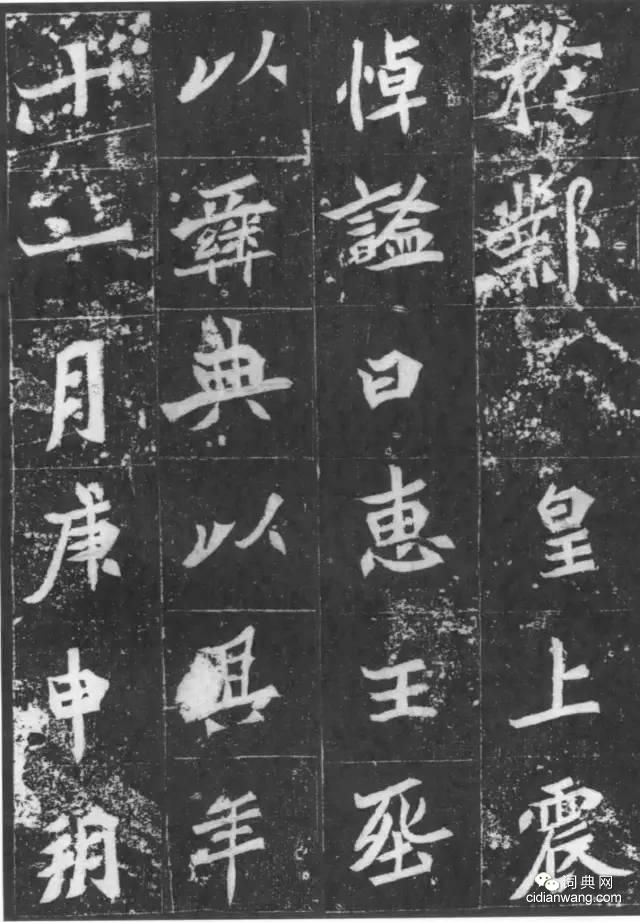 於鄴皇上震
悼謚曰惠王葬
以彝典以其年
十一月庚申朔
词典网
cidianwang.com